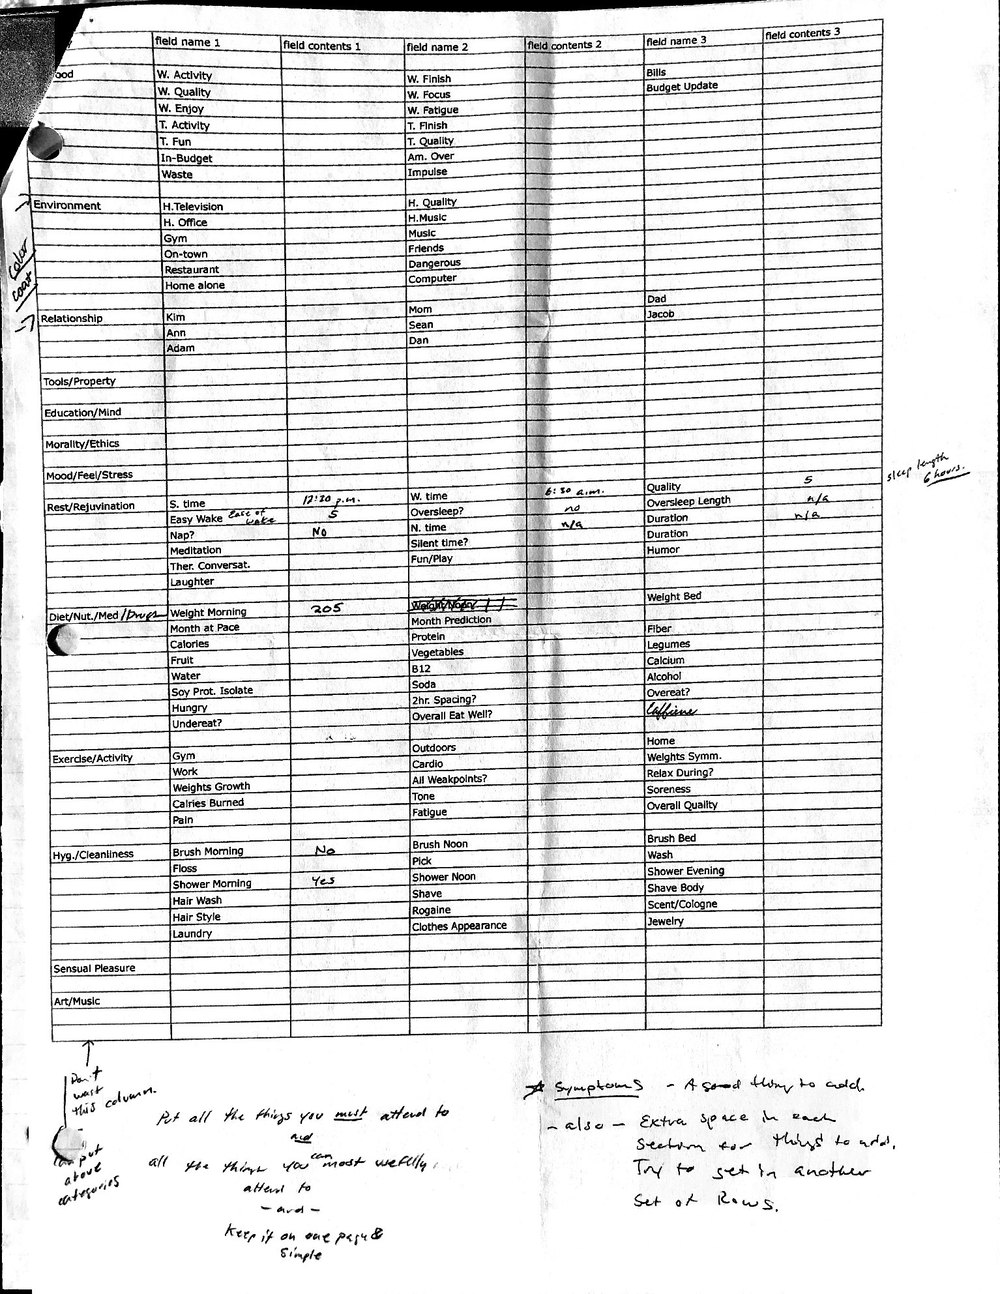 field name 1 field contents 1 field name 2 field contents 2 field name 3 field contents 3
ood W. Activity W. Finish Bills
W. Quality W. Focus Budget Update
W. Enjoy W. Fatigue
T. Activity T. Finish
T. Fun T. Quality
In-Budget Am. Over
Waste Impulse
Environment H.Television H. Quality
H. Office H.Music
Gym Music
On-town Friends
Restaurant Dangerous
Home alone Computer
color
Mom Dad
Relationship Kim Sean Jacob
Ann Dan
Adam
Tools/Property
Education/Mind
Morality/Ethics
Mood/Feel/Stress
sleep length
6 hours.
Rest/Rejuvination S. time 12:30 p.m. W. time 6:30 a.m. Quality 5
Easy Wake Ease of wake 5 Oversleep? no Oversleep Length n/a
Nap? No N. time n/a Duration n/a
Meditation Silent time? Duration
Ther. Conversat. Fun/Play Humor
Laughter
Diet/Nut./Med/Drugs Weight Morning 205 Weight Noon Weight Bed
Month at Pace Month Prediction
Calories Protein Fiber
Fruit Vegetables Legumes
Water B12 Calcium
Soy Prot. Isolate Soda Alcohol
Hungry 2hr. Spacing? Overeat?
Undereat? Overall Eat Well? Caffiene
Exercise/Activity Gym Outdoors Home
Work Cardio Weights Symm.
Weights Growth All Weakpoints? Relax During?
Calries Burned Tone Soreness
Pain Fatigue Overall Quality
Hyg./Cleanliness Brush Morning No Brush Noon Brush Bed
Floss Pick Wash
Shower Morning Yes Shower Noon Shower Evening
Hair Wash Shave Shave Body
Hair Style Rogaine Scent/Cologne
Laundry Clothes Appearance Jewelry
Sensual Pleasure
Art/Music
Don't
wast
this column.
can put
above
categories
Put all the things you must attend to
and
all the things you can most usefully
attend to
- and -
Keep it on one page &
simple
* Symptoms - A good thing to add.
- also - Extra space in each
section for things to add.
Try to get in another
set of Rows.